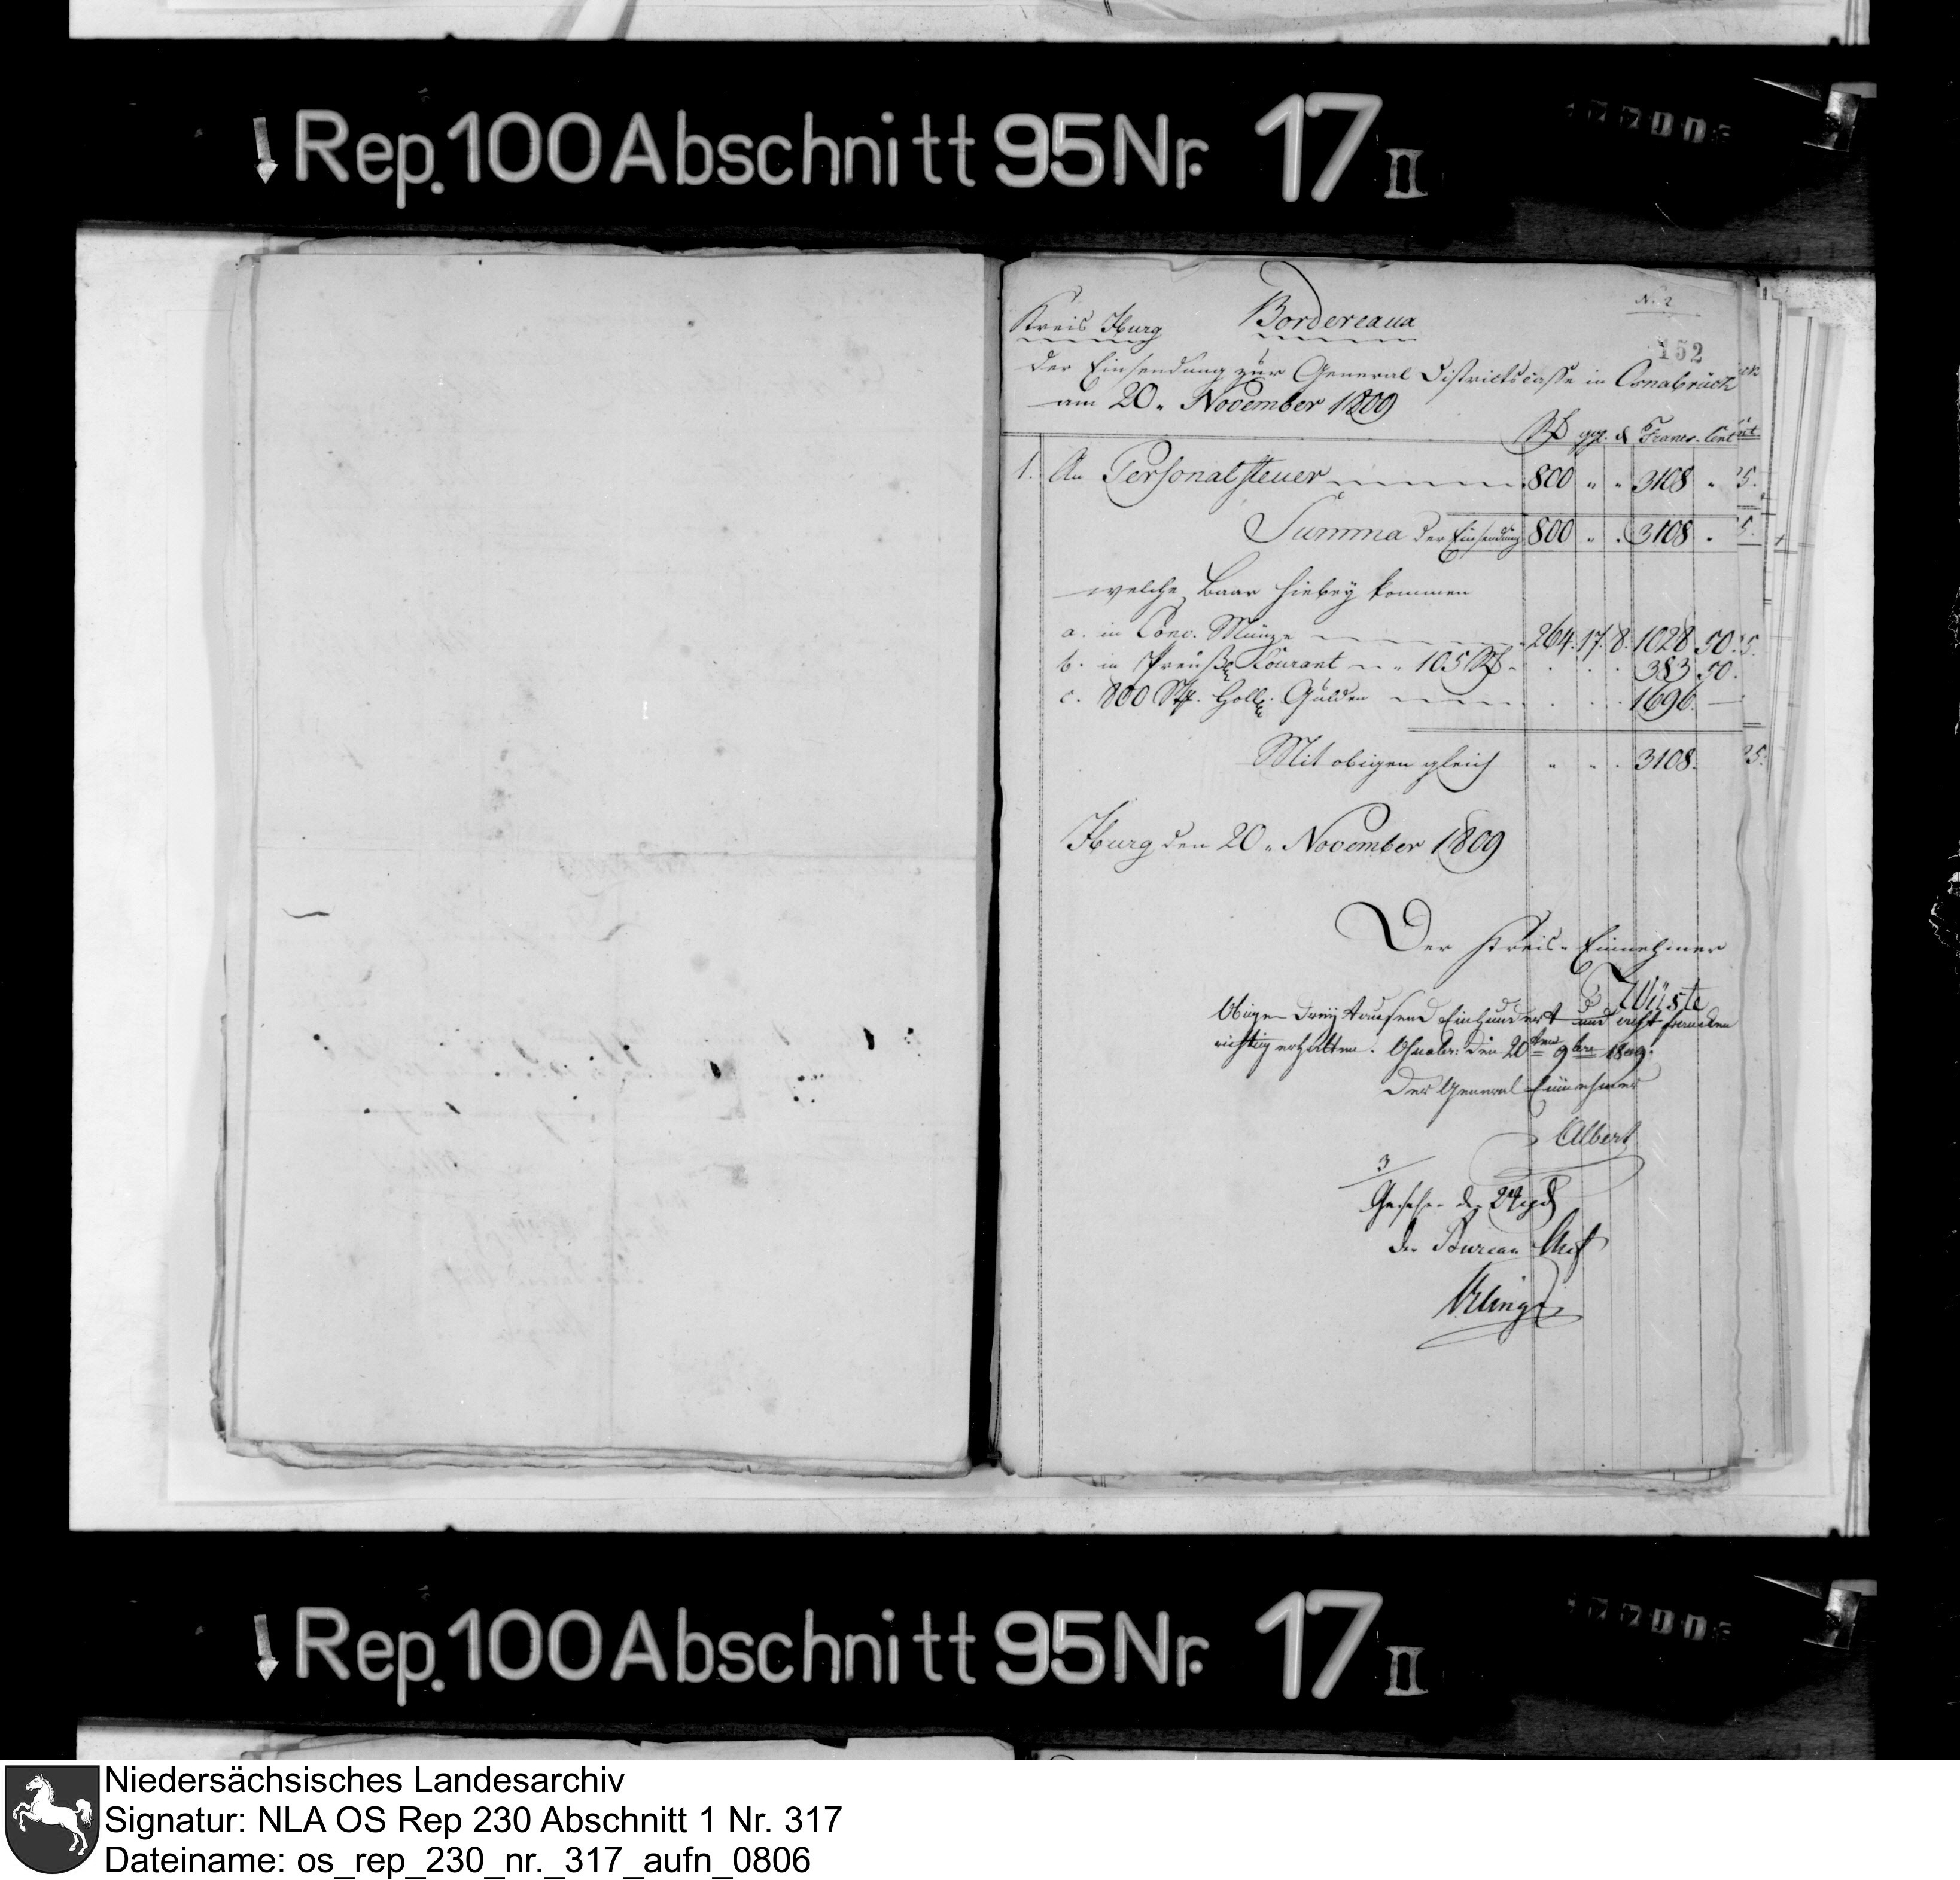 Rep. 100 Abschnitt 95 Nr. 17 II
N. 2
Kreis Iburg Bordereaux
152
der Einsendung zur General Districtscasse in Osnabrück
am 20. November 1809
Rth ggr. d Francs. Cent
1. An Personalsteuer 800 " " 3108 "
Summa der Einsendung 800 " . 3108 "
welche Baar hiebey kommen
a. in Conv. Münze 264. 17. 8. 1028 50.
b. in Preuß. Courant 105 Rth. 383 50.
c. 800 Stk. Holl. Gulden 1696. —
Mit obigen gleich " " . 3108.
Iburg den 20. November 1809
Der Kreis-Einnehmer
Wüste
Obige Dreytausend Einhundert und acht Francken
richtig erhalten. Osnabr: den 20ten 9bre 1809.
Der General Einnehmer
Albert
3
Gesehen d.
der Bureau Chef
Rep. 100 Abschnitt 95 Nr. 17 II
Niedersächsisches Landesarchiv
Signatur: NLA OS Rep 230 Abschnitt 1 Nr. 317
Dateiname: os_rep_230_nr._317_aufn_0806